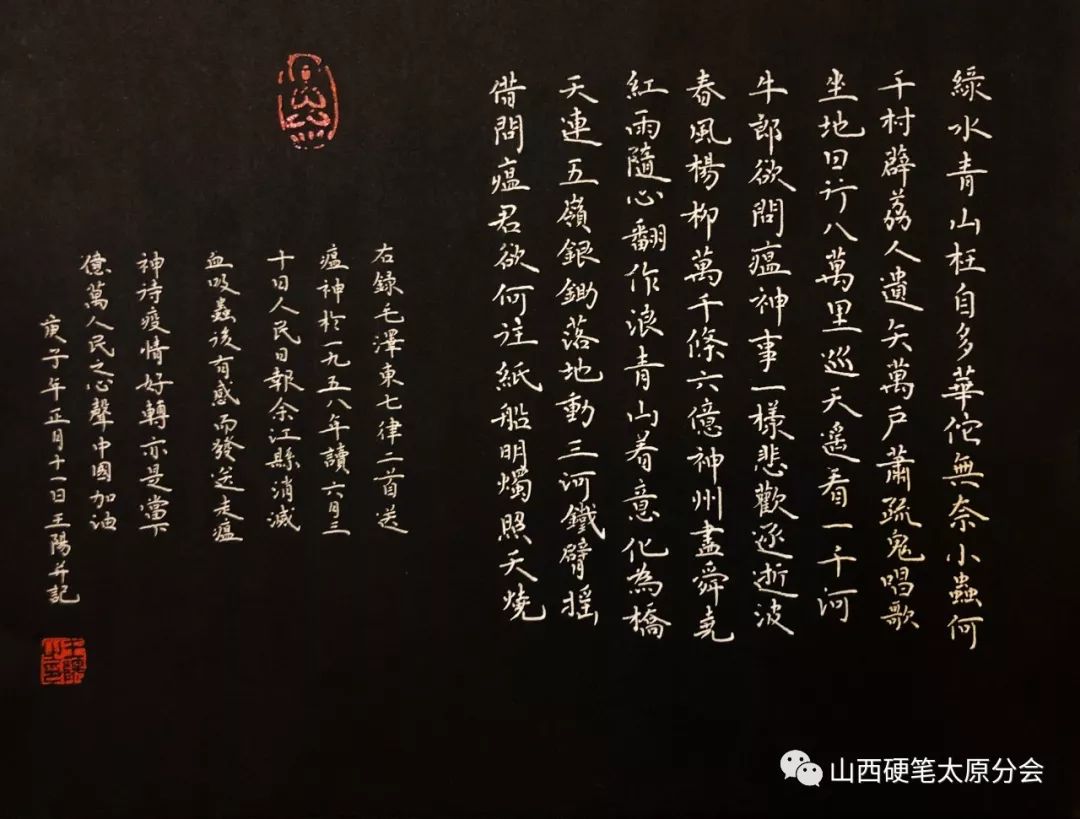 綠水青山枉自多華佗無奈小蟲何
千村薜荔人遺矢萬戶蕭疏鬼唱歌
坐地日行八萬里巡天遙看一千河
牛郎欲問瘟神事一樣悲歡逐逝波
春風楊柳萬千條六億神州盡舜堯
紅雨隨心翻作浪青山着意化為橋
天連五嶺銀鋤落地動三河鐵臂搖
借問瘟君欲何往紙船明燭照天燒
右錄毛澤東七律二首送
瘟神於一九五八年讀六月三
十日人民日報余江縣消滅
血吸蟲後有感而發送走瘟
神詩疫情好轉亦是當下
億萬人民之心聲中國加油
庚子年正月十一日王陽并記
山西硬笔太原分会